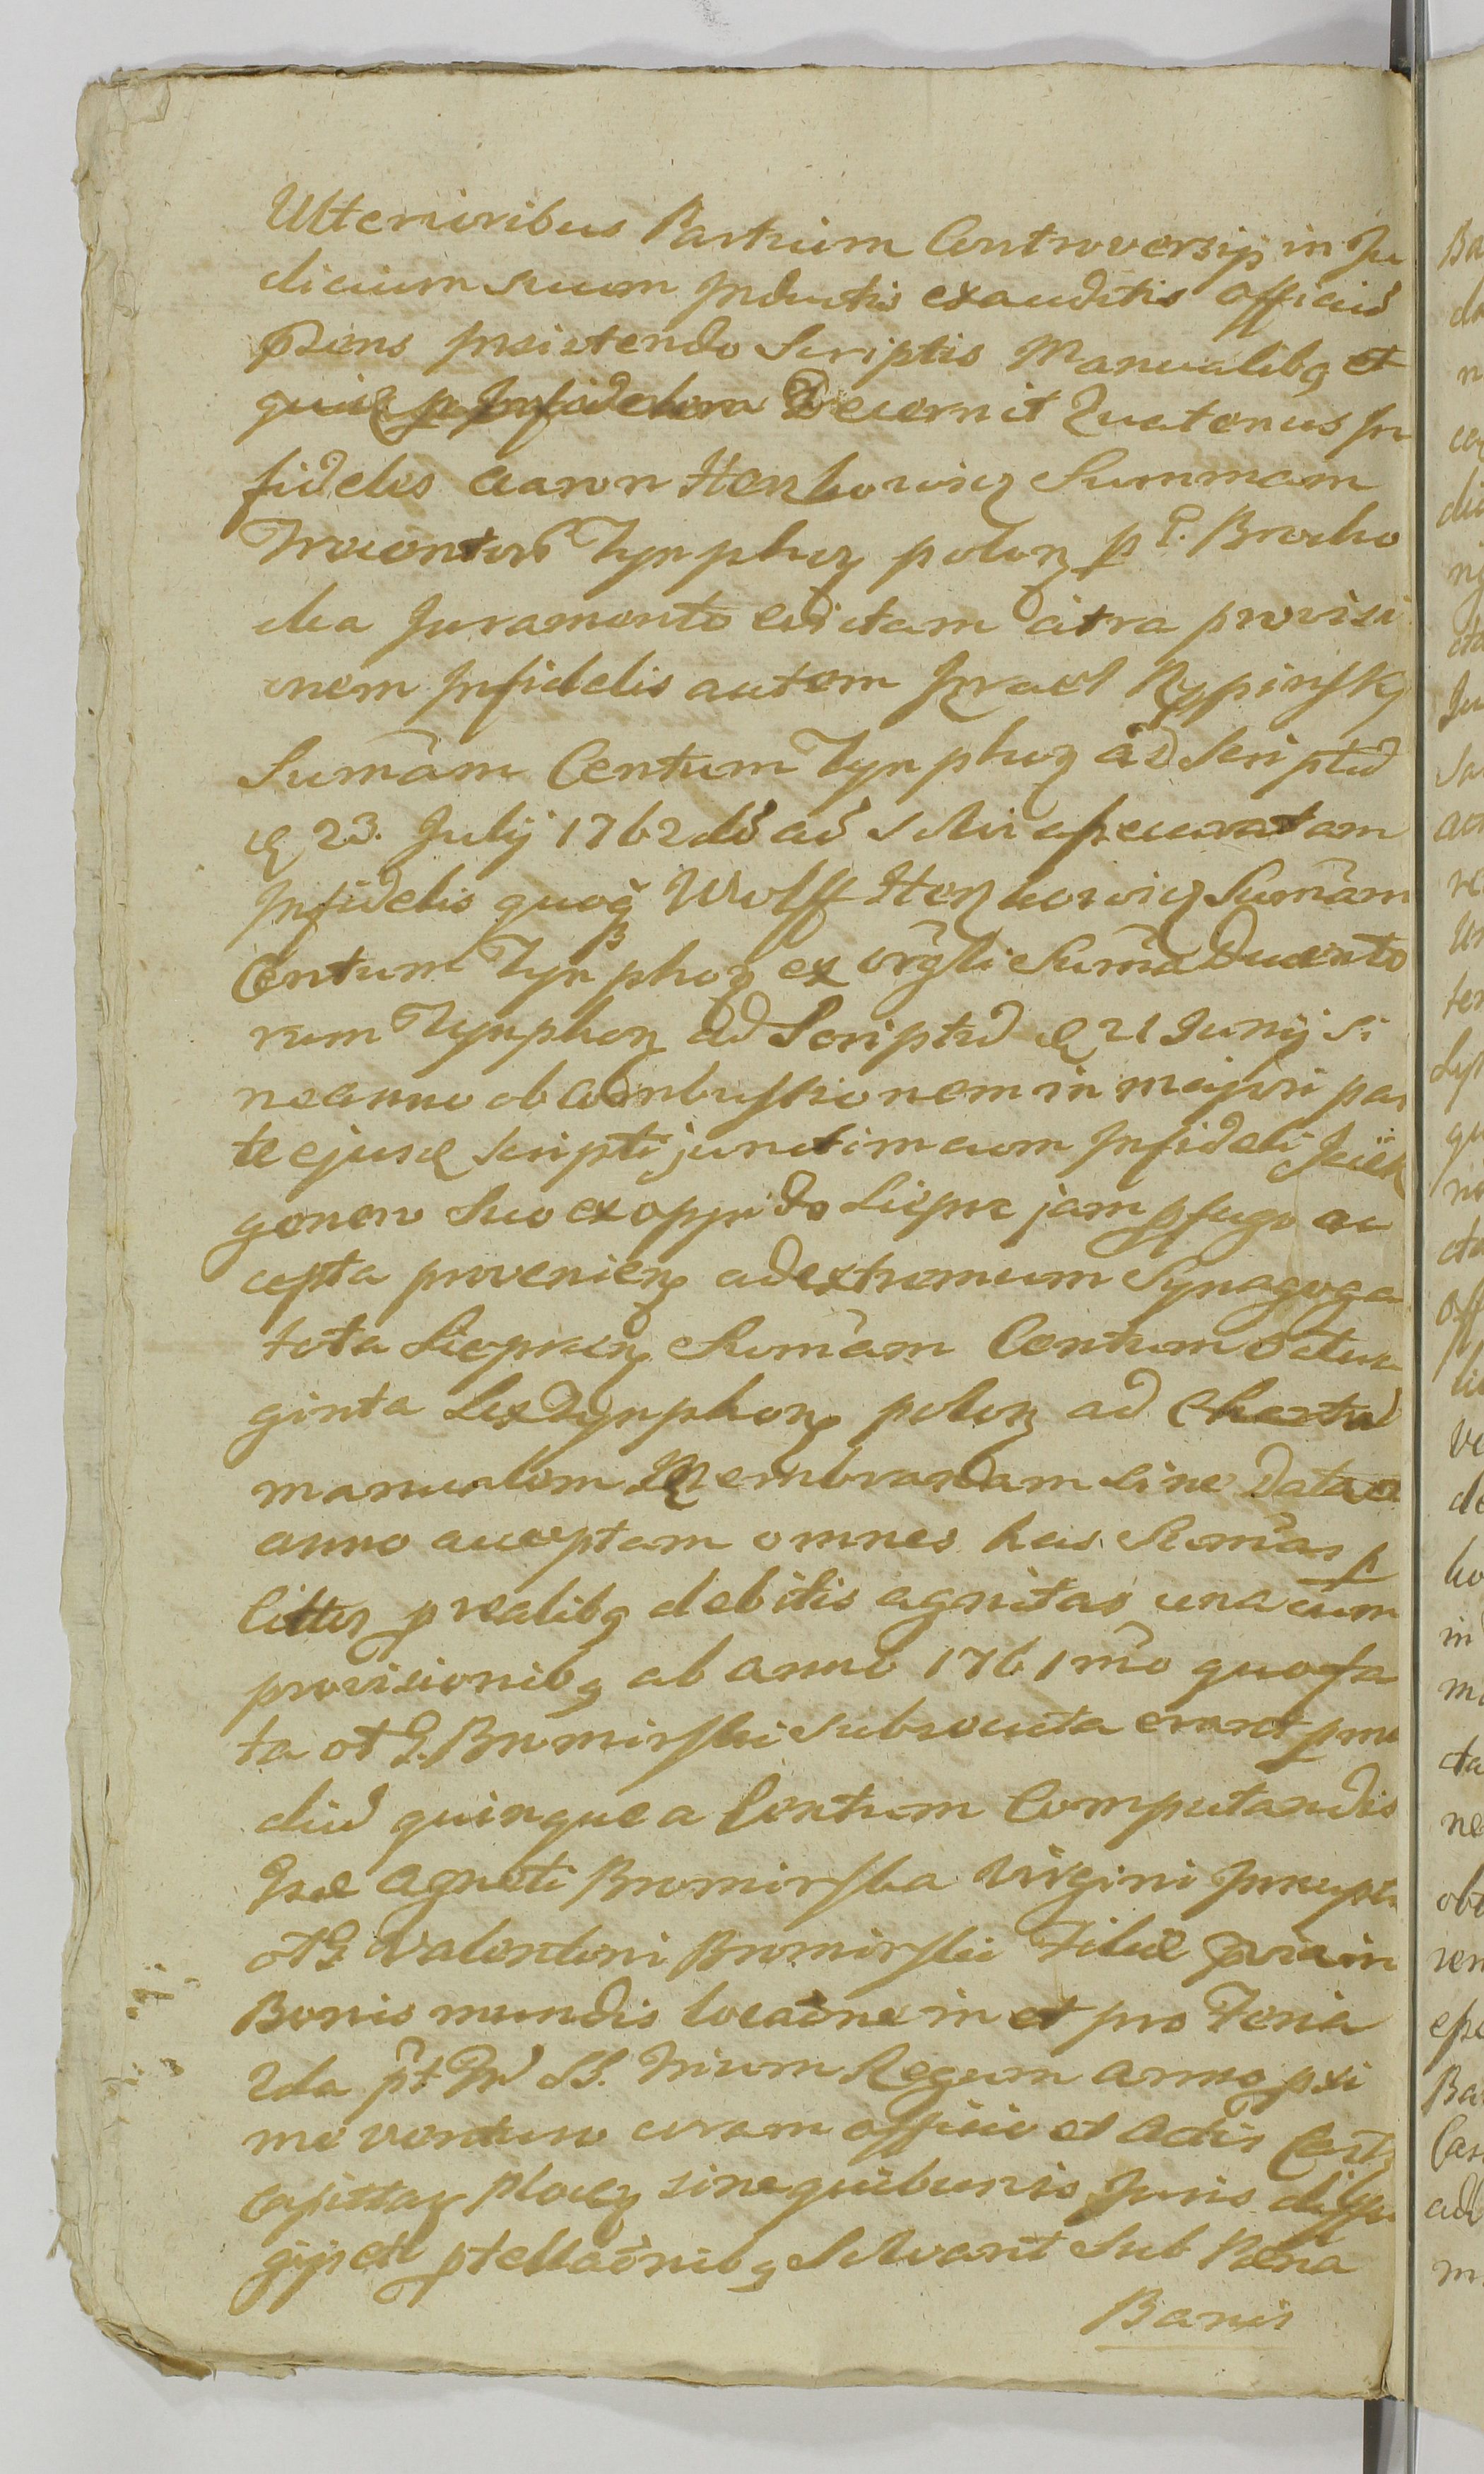 Ulterioribus Partium Controversijs in Ju
dicium suum Inductis exauditis officiu
psens insistendo Scriptis Manualibq et
Decernit Quatenus In
fidelis Aaron Herzkowicz Summam
Trecentor Tynphor polon p G. Brocho
cka Juramento evictam citra provisi
onem Infidelis autem Izrael Rypinsky
Sumam Centum Tynphor ad Scriptu
de 23. Julij 1762do ad
Infidelis quoq Wolff Herzkowicz Sumam
Centum Tynphor ex orgli Suma Ducento
rum Tynphor ad Scriptu de 21 Junij si
ne anno ob Combustionem in majori par
te ejusd scripti junctim cum Infideli
genero Suo ex oppido Siepre jam pfugo ac
cepta provenien ad extremum Synagoga
tota Siepcen Sumam Centum Octua
ginta Sex Tynphor polon ad Charta
manualem Membranam sine Data et
anno acceptam omnes has Sumas p
litter prealibq debitis agnitas una cum
provisionibq ab anno 1761mo quo fa
ta ol G. Bromirski subsecuta erant p me
diu quinque a Centum Computandis
Gsae Agneti Bromirska Virgini Innupta
ol G Valentini Bromirski Filiae pvia in
Bonis mundis locaone in et pro Feria
2da pt Fm SS. Trium Regum anno pxi
me venturo coram officio et Actis Castr
Capittal Plocen sine quibusvis Juris diffu
gijs etl ptellaonibq Solvant Sub Poena
Banis